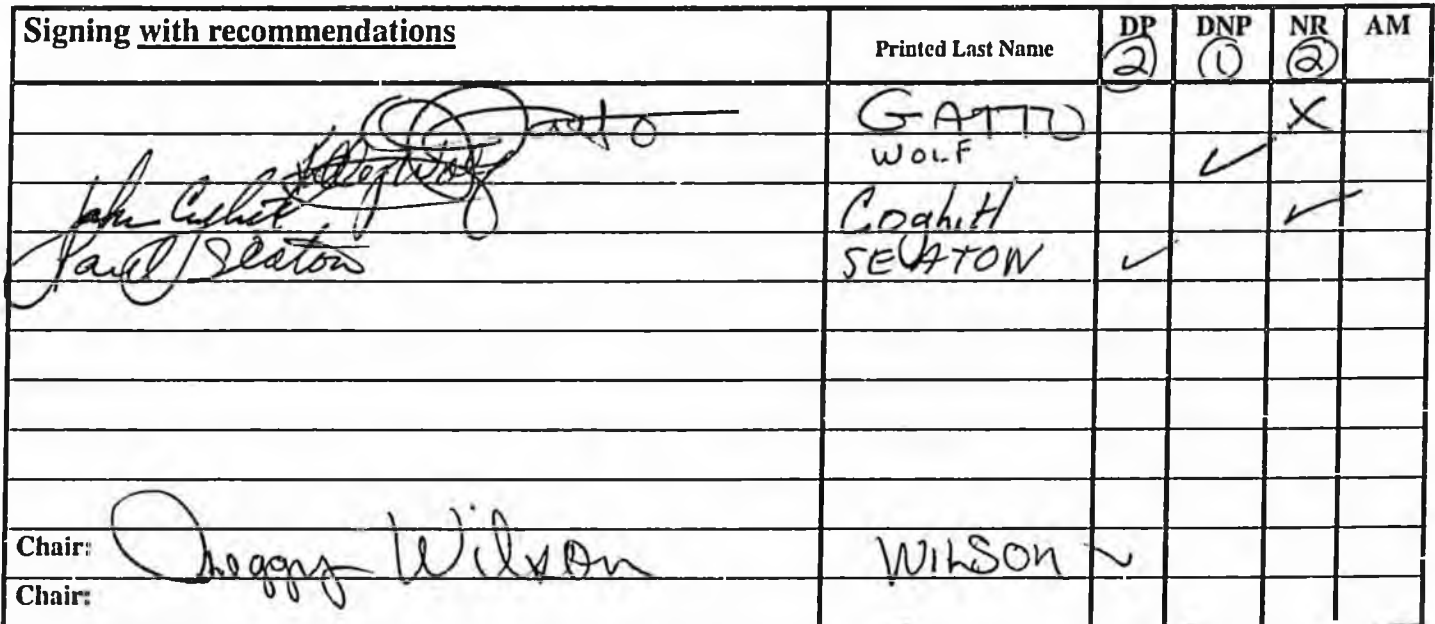 Signing with recommendations Printed Last Name DP DNP NR AM
2 1 2
Gatto GATTO X
WOLF ✓
John Coghill Coghill ✓
Paul Seaton SEATON ✓
Chair: Peggy Wilson WILSON ✓
Chair: